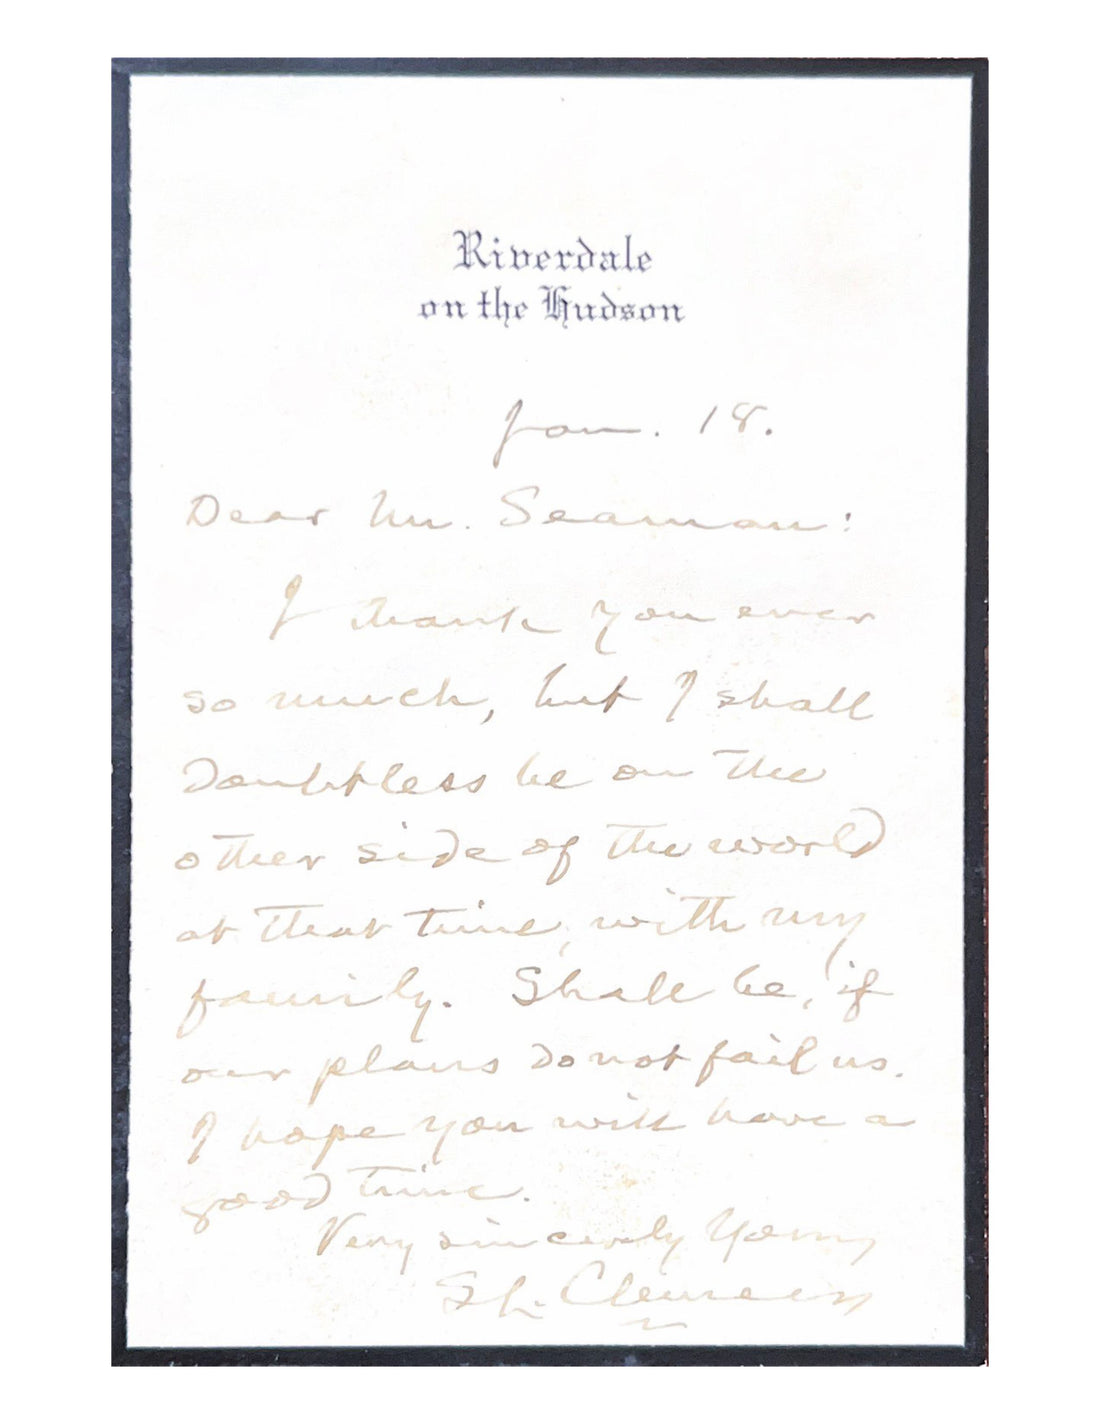 Riverdale
on the Hudson
Jan. 18.
Dear Mr. Seaman:
I thank you ever
so much, but I shall
doubtless be on the
other side of the world
at that time, with my
family. Shall be, if
our plans do not fail us.
I hope you will have a
good time.
Very sincerely Yours,
SL. Clemens